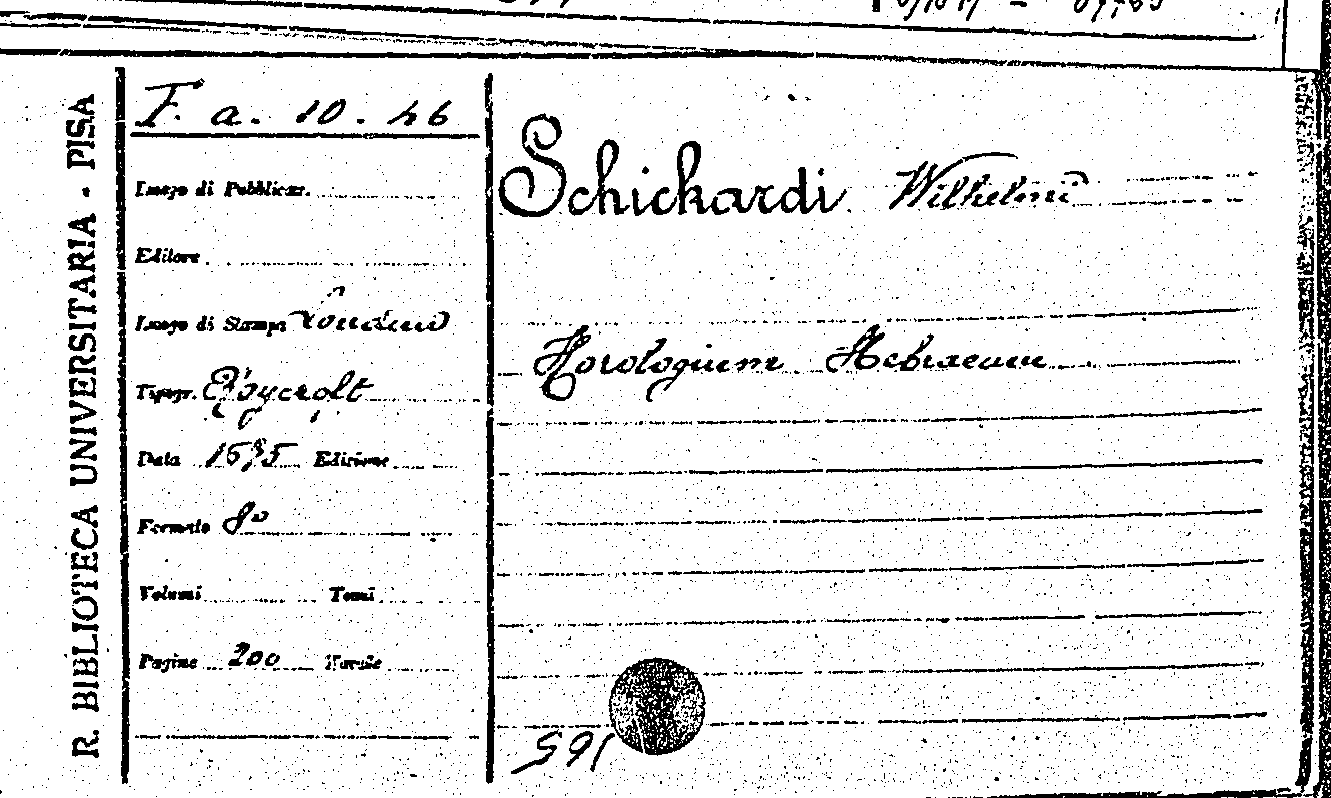 R. BIBLIOTECA UNIVERSITARIA - PISA
F. a. 10. 46
Luogo di Pubblicaz.
Editore
Luogo di Stampa Londini
Tipogr. Roycroft
Data 1675 Edizione
Formato 8º
Volumi Tomi
Pagine 200 Tavole
Schickardi Wilhelmi
Horologium Hebraeum